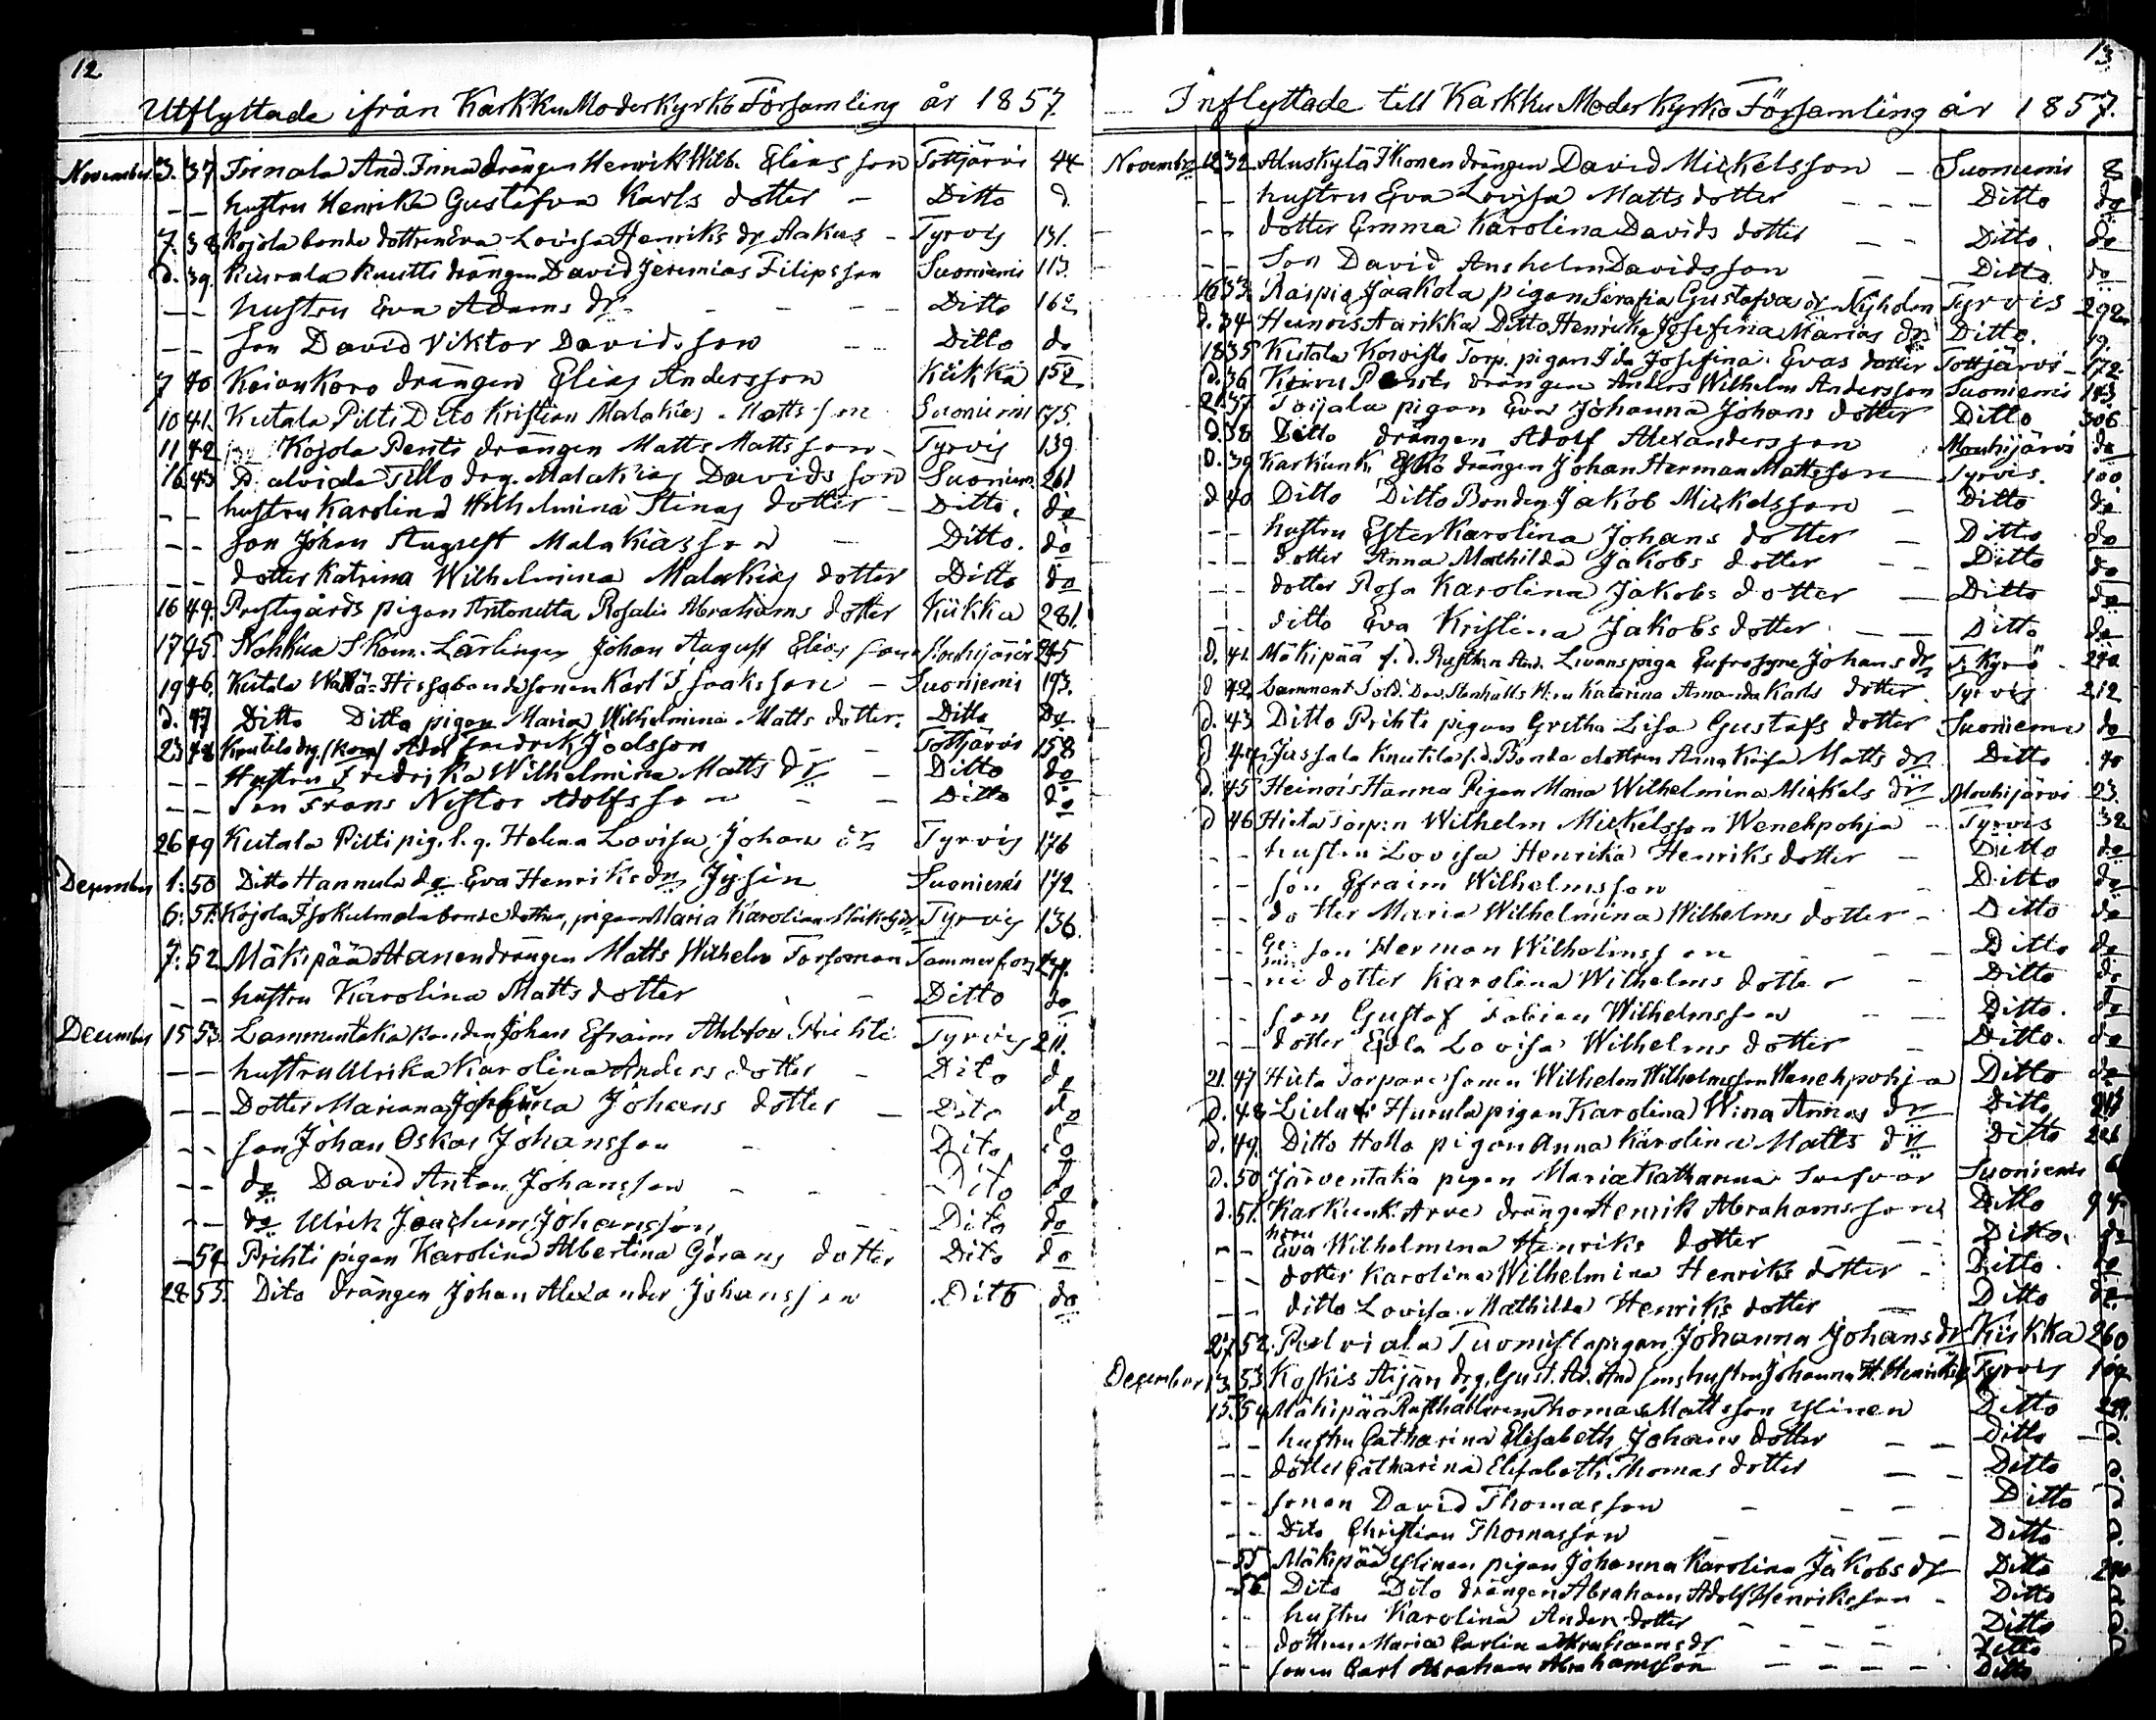 12
Utflyttade ifrån Karkku Moderkyrko Församling år 1857.
November 3. 37 Finnala And. Finna drängen Henrik Wilh. Elias son Tottjärvi 44
- - hustru Henrika Gustafva Karls dotter - Ditto d
7. 38 Kojola bonde dottren Eva Lovisa Henriks dr Aakus - Tyrvis 131.
d. 39. Kuurala Knutti drängen David Jeremias Filipsson Suoniemi 113.
- - hustru Eva Adams dr - - - - Ditto 162
- - Son David Viktor Davidsson - Ditto do
7 40 drängen Elias Andersson Kiikka 152
10 41. Kutala Pilti Dito Kristian Malakias Matts son Suoniemi 175.
11 42 Kojola Pentti drängen Matts Mattsson - Tyrvis 139
16 43 Tillo drg. Malakias Davids son Suoniem. 261
- - hustru Karolina Wilhelmina Stinas dotter - Ditto. do
- - Son Johan August Malakiasson - Ditto. do
- - dotter Katrina Wilhelmina Malakias dotter Ditto do
16 44. Prestegårds pigan Antonetta Rosalia Abrahams dotter Kiikka 281.
17 45. Nohkua Lärlingen Johan August Elias son Mouhijärvi 245
19 46. Kutala Hissa bonde sonen Karl Isaksson - Suoniemi 193.
d. 47 Ditto Ditto pigan Maria Wilhelmina Matts dotter. Ditto Do.
23 48 Knutila drg. Adolf Fredrik Joelsson - - Tottjärvi 158
- - Hustru Fredrika Wilhelmina Matts dr - Ditto do
- - Son Frans Nestor Adolfsson - - Ditto do
26 49 Kutala Pilti pig. Helena Lovisa Johans dr Tyrvis 176
December 1: 50 Ditto Hannula do Eva Henriks dr Suoniemi 172
6: 51. Kojola bonde dottren, pigan Maria Karolina Tyrvis 136.
7: 52 Mäkipää drängen Matts Wilhelm Forsman Tammerfors
- - hustru Karolina Matts dotter - Ditto do
December 15 53. Lammentaka Johan Efraim Prihti Tyrvis 211.
- - hustru Ulrika Karolina Anders dotter - Dito do
- - Dotter Mariana Josefina Johans dotter - Dito do
- - son Johan Oskar Johansson - Dito do
- - do David Anton Johansson - - - Dito do
- - do Ulrik Joachim Johansson - Dito do
- 54 Prihti pigan Karolina Albertina Görans dotter Dito do
22 55. Dito drängen Johan Alexander Johansson Dito do
13
Inflyttade till Karkku Moderkyrko Församling år 1857.
November 12 32 Aluskylä Ikonen drängen David Mickelsson - Suoniemi 8
- - hustru Eva Lovisa Matts dotter - - - Ditto do
- - dotter Emma Karolina Davids dotter - - Ditto. do
- - Son David Anshelm Davidsson - - Ditto. do
16 33. Raipio Jaakola pigan Serafia Gustafva Nyholm Tyrvis 292
d. 34 Heinois Aarikka Ditto Henrika Josefina Marias dr Ditto. 19.
18 35 Kutala Koivisto Torp. pigan Ida Josefina Evas dotter Tottjärvi - 172
d. 36 drängen Anders Wilhelm Andersson Suoniemi 143.
21 37 Toijala pigan Eva Johanna Johans dotter Ditto 306
d. 38 Ditto drängen Adolf Alexandersson Mouhijärvi do
d. 39 Karkunk. Eskö drängen Johan Herman Mattsson Tyrvis. 100
d 40 Ditto Ditto Bonden Jakob Mickelsson - Ditto do
- - hustru Ester Karolina Johans dotter - Ditto do
- - dotter Anna Mathilda Jakobs dotter - - Ditto do
- - dotter Rosa Karolina Jakobs dotter - Ditto do
- - ditto Eva Kristina Jakobs dotter - - Ditto do
d. 41. Mäkipää piga Eufrosyne Johans dr Kyrö 240
d 42. Lamment. Sold. Dav. Katarina Amanda Karls dotter Tyrvis 212
d. 43 Ditto Prihti pigan Gretha Lisa Gustafs dotter Suoniemi do
d 44. Jussala Knutila f.d. Bonde dottren Anna Kaisa Matts dr Ditto 40
d. 45 Heinois Hanna Pigan Maria Wilhelmina Mickels dr Mouhijärvi 23.
d 46 Hiita Torp:n Wilhelm Mickelsson Wenehpohja - Tyrvis 32
- - hustru Lovisa Henrika Henriks dotter - Ditto do
- - son Efraim Wilhelmsson - - Ditto do
- - dotter Maria Wilhelmina Wilhelms dotter - Ditto do
- - son Herman Wilhelmsson - - - Ditto do
- - dotter Karolina Wilhelms dotter - Ditto do
- - son Gustaf Fabian Wilhelmsson - - Ditto. do
- - dotter Edla Lovisa Wilhelms dotter - Ditto. do
21. 47 Hiita Torpare sonen Wilhelm Wilhelmsson Wenehpohja Ditto do
d. 48 Hurula pigan Karolina Wina Annas dr Ditto
d. 49. Ditto Hollo pigan Anna Karolina Matts dr Ditto
d. 50 Järventaka pigan Maria Katharina Suoniemi 6
d. 51. Karkunk. Arve drängen Henrik Abrahamsson Ditto 94.
- - Eva Wilhelmina Henriks dotter - - Ditto. do
- - dotter Karolina Wilhelmina Henriks dotter - Ditto. do
- - ditto Lovisa Mathilda Henriks dotter - Ditto do.
27 52. Tuomisto pigan Johanna Johans dr Kiikka 260
December 13. 53 Koskis Äijän drg. Gust. Ad. And sons hustru Johanna Tyrvis
15. 54 Mäkipää Thomas Mattsson Ylinen Ditto
- - hustru Catharina Elisabeth Johans dotter - - Ditto - d.
- - dotter Catharina Elisabeth Thomas dotter - - Ditto d.
- - sonen David Thomasson - - - Ditto d
- - Dito Christian Thomasson - - - - Ditto d.
- 55 Mäkipää Ylinen pigan Johanna Karolina Jakobs dr Ditto
- 56 Dito Dito drängen Abraham Adolf Henriksson - Ditto d
- - hustru Karolina Anders dotter - - - Ditto d
- - dottren Maria Carlina Abrahams dr - - - - Ditto d
- - sonen Carl Abraham Abrahamsson - - - - - Ditto